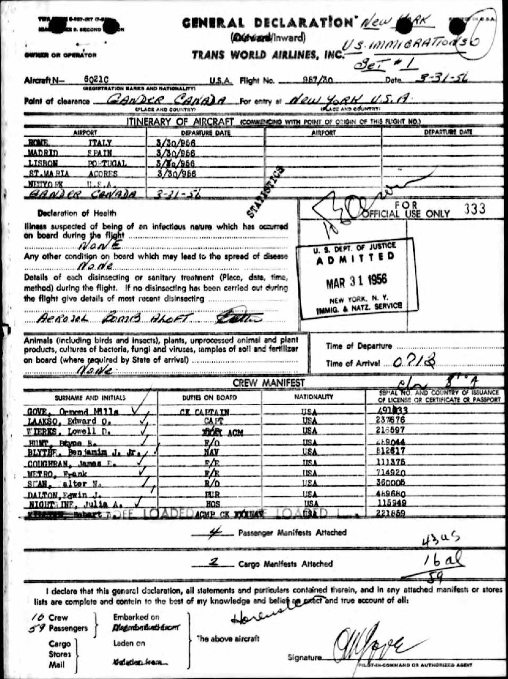 GENERAL DECLARATION New York
(Outward/Inward) U.S. IMMIGRATION
OWNER OR OPERATOR TRANS WORLD AIRLINES, INC.
Set #1
Aircraft N— 6021C U.S.A. Flight No. 967/30 Date 3-31-56
(REGISTRATION MARKS AND NATIONALITY)
Point of clearance GANDER CANADA For entry at NEW YORK U.S.A.
(PLACE AND COUNTRY) (PLACE AND COUNTRY)
ITINERARY OF AIRCRAFT (COMMENCING WITH POINT OF ORIGIN OF THIS FLIGHT NO.)
AIRPORT DEPARTURE DATE AIRPORT DEPARTURE DATE
ROME ITALY 3/30/956
MADRID SPAIN 3/30/956
LISBON PORTUGAL 3/30/956
ST.MARIA ACORES 3/30/956
NEWYORK U.S.A.
GANDER CANADA 3-31-56
STATISTICS
Declaration of Health
FOR
OFFICIAL USE ONLY 333
Illness suspected of being of an infectious nature which has occurred
on board during the flight
None
Any other condition on board which may lead to the spread of disease
None
U. S. DEPT. OF JUSTICE
ADMITTED
MAR 31 1956
NEW YORK, N. Y.
IMMIG. & NATZ. SERVICE
Details of each disinsecting or sanitary treatment (Place, date, time,
method) during the flight. If no disinsecting has been carried out during
the flight give details of most recent disinsecting
AEROSOL BOMB ALOFT
Animals (including birds and insects), plants, unprocessed animal and plant
products, cultures of bacteria, fungi and viruses, samples of soil and fertilizer
on board (where required by State of arrival)
None
Time of Departure
Time of Arrival 0713
CREW MANIFEST
SURNAME AND INITIALS DUTIES ON BOARD NATIONALITY SERIAL NO. AND COUNTRY OF ISSUANCE
OF LICENSE OR CERTIFICATE OR PASSPORT
GOVE, Ormond Mills CK CAPTAIN USA
LAAKSO, Edward O. CAPT USA 237676
Lowell D. ACM USA 218597
HUNT, F/O USA 489044
BLYTHE, Benjamin J. Jr. NAV USA 812617
COUGHRAN, James E. F/E USA 111375
METRO, Frank F/E USA 714920
alter N. R/O USA 360006
DALTON, Edwin J. PUR USA 489680
Julia A. HOS USA 115949
Robert SEE LOADED ACMP CK LOADED USA 221859
4 Passenger Manifests Attached
43 US
2 Cargo Manifests Attached
16 al
59
I declare that this general declaration, all statements and particulars contained therein, and in any attached manifests or stores
lists are complete and contain to the best of my knowledge and belief an exact and true account of all:
10 Crew Embarked on
59 Passengers Disembarked from
Cargo Laden on The above aircraft
Stores
Mail Unladen from
Signature
PILOT-IN-COMMAND OR AUTHORIZED AGENT